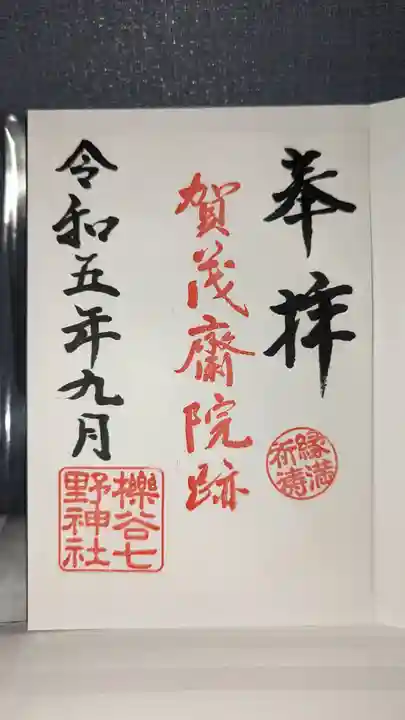 奉拝
縁満
祈祷
賀茂齋院跡
令和五年九月
櫟谷七
野神社